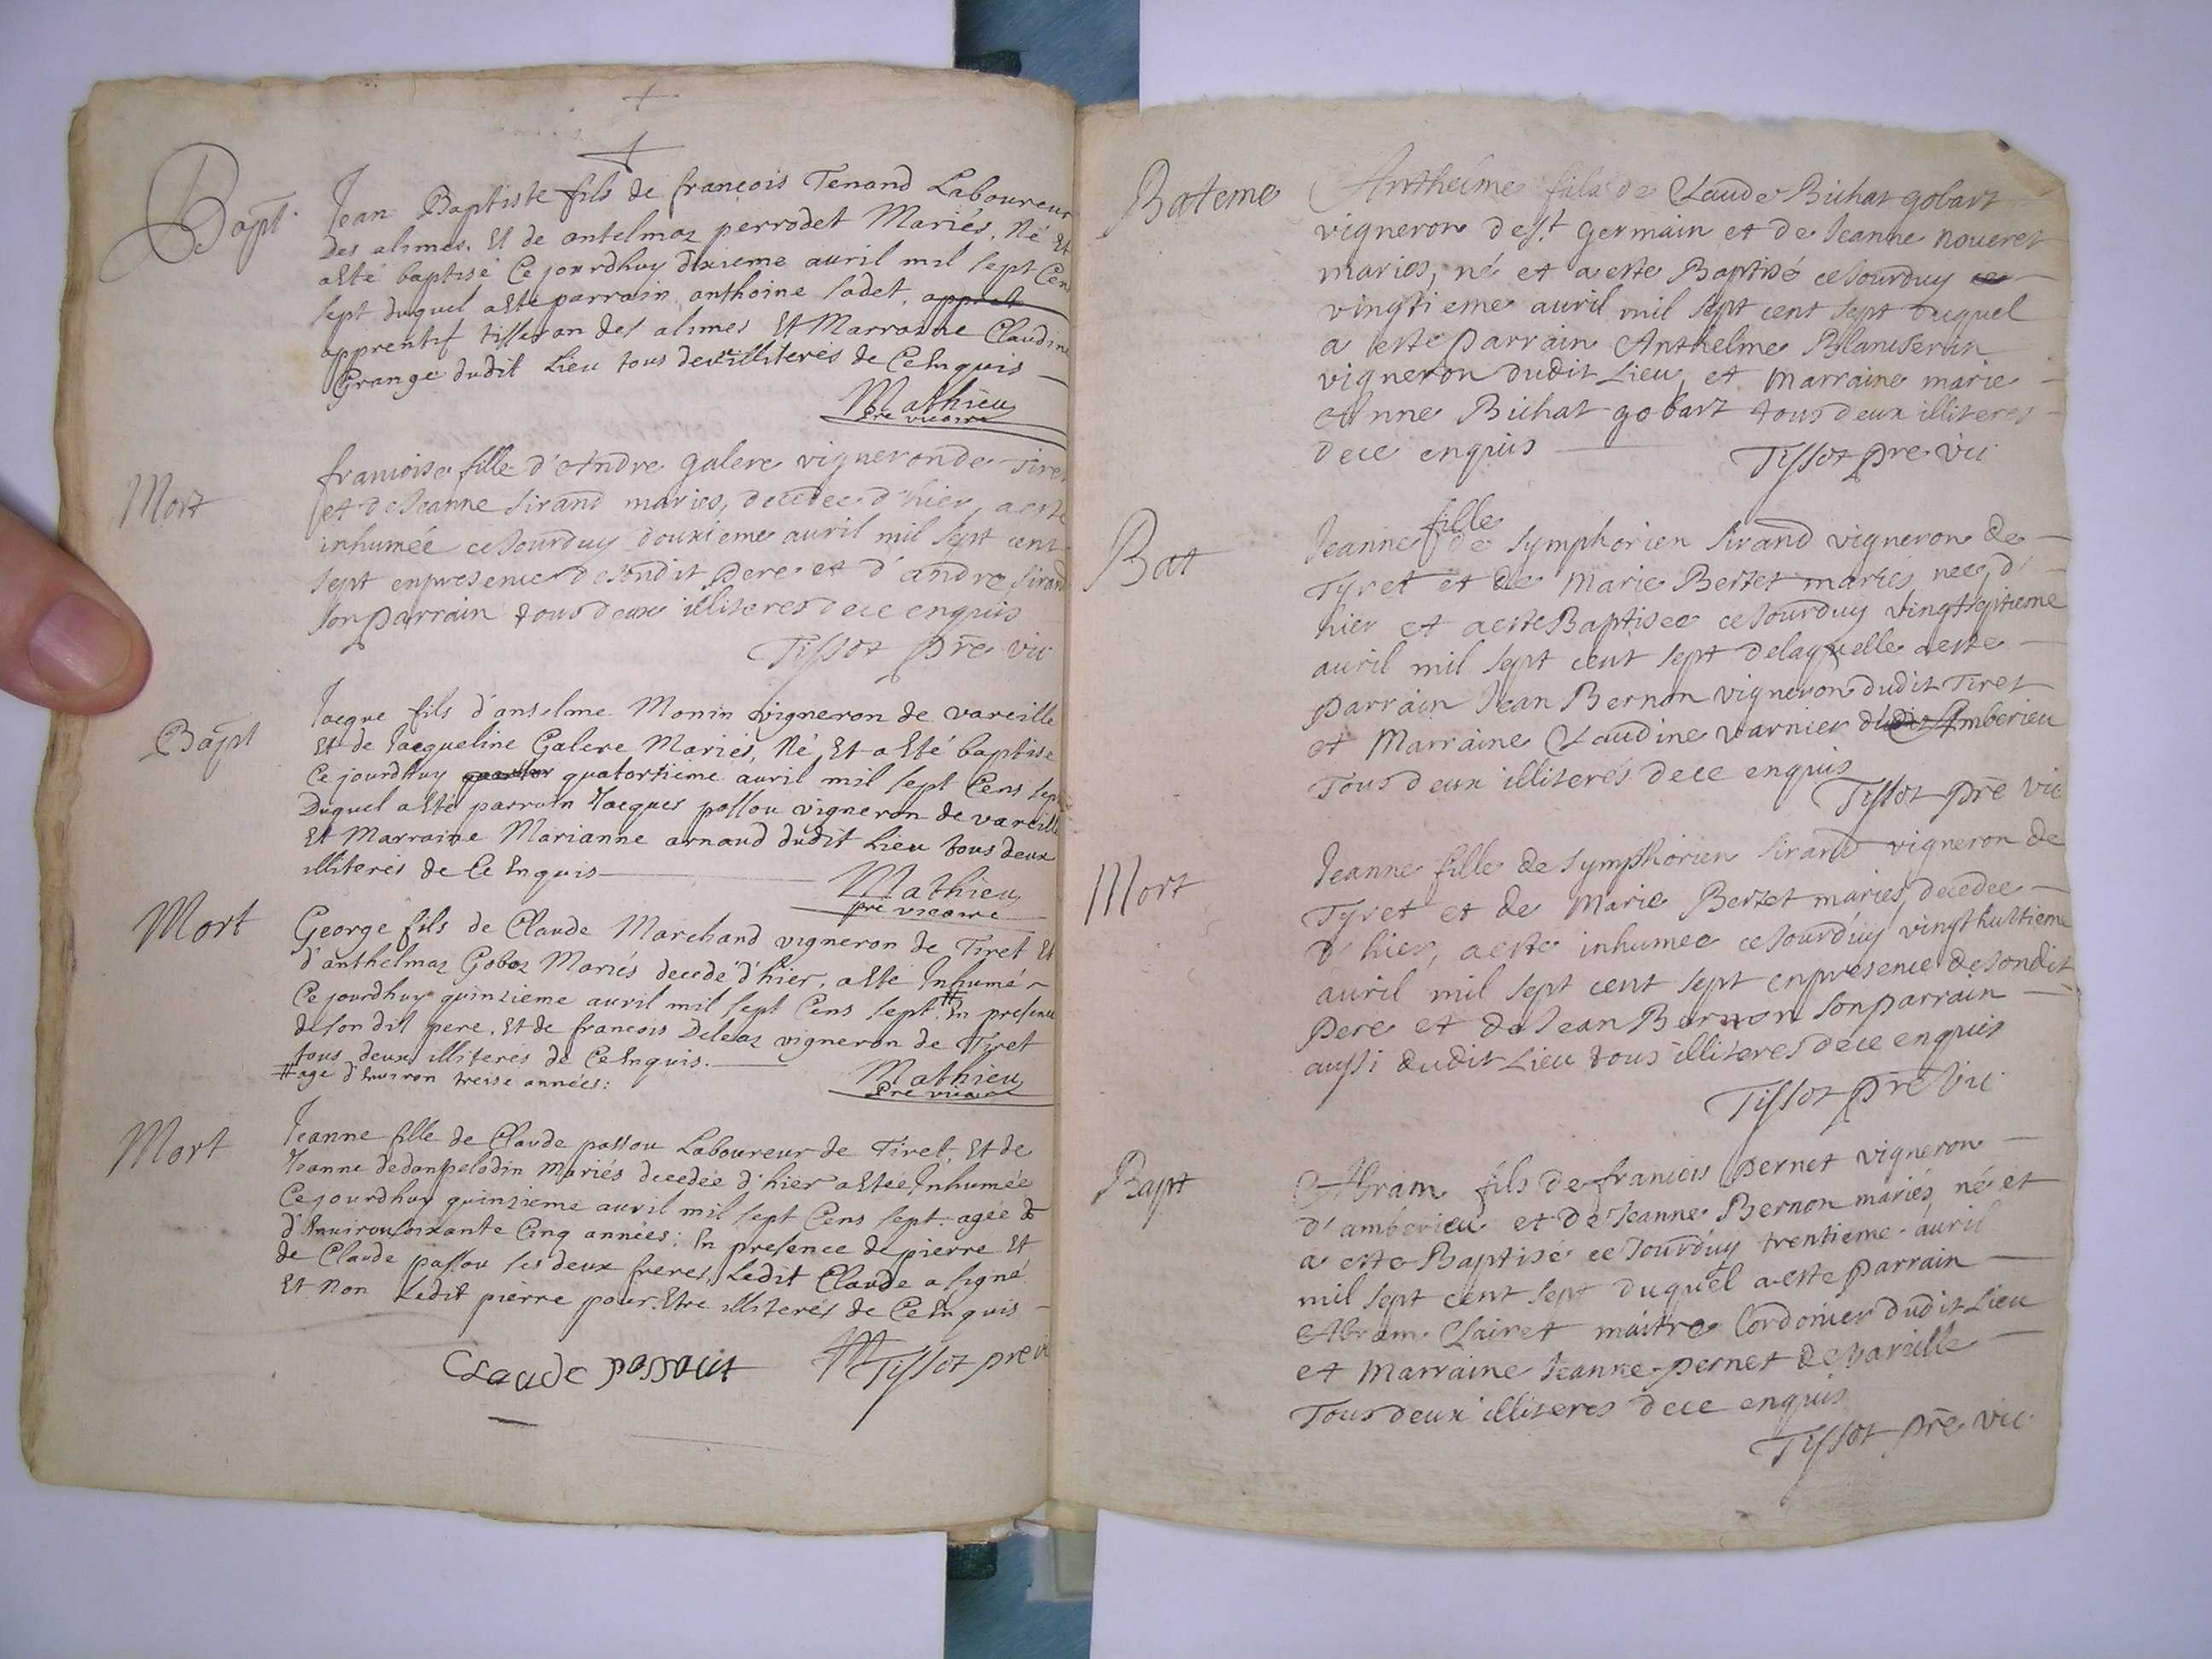 Bapt. Jean Baptiste fils de françois Tenand Laboureur
des alimes. Et de antelmaz perrodet Mariés. Né Et
aEté baptisé Ce jourdhuy dixieme auril mil sept Cen
sept duquel aEté parrain anthoine sadet. apprat
apprentif tisseran des alimes Et Marraine Claudine
Grange dudit Lieu tous deux illiterés de Ce Enquis
Mathieu
pre vicaire
Mort
francoise fille d'Andre galere vigneron de Tiret
et de Jeanne sirand maries, decedee d'hier, a esté
inhumée ce Jourduy douxieme auril mil sept cent
sept enpresence de sondit pere et d'andre sirand
son parrain tous deux illiteres de ce enquis
Tissot pre vic
Bapt
Jacque fils d'anselme Monin vigneron de vareille
Et de Jacqueline Galere Mariés, Né Et a Eté baptise
Ce jourdhuy quator quatortieme auril mil sept Cens sept
Duquel a Eté parrain Jacques passou vigneron de vareille
Et Marraine Marianne arnaud dudit Lieu tous deux
illiterés de Ce Enquis
Mathieu
pre vicaire
Mort
George fils de Claude Marchand vigneron de Tiret Et
d'anthelmaz Goboz Mariés decedé d'hier, a Eté Inhumé
Ce jourdhuy quinzieme auril mil sept Cens sept # En presence
de son dit pere. Et de francois Deleaz vigneron de Tiret
tous deux illiterés de Ce Enquis.
# age d'Environ treise années:
Mathieu
Pre vicaire
Mort
Jeanne fille de Claude passou Laboureur de Tiret, Et de
Jeanne dedanpelodin Mariés decedée d'hier a Eté Inhumée
Ce jourdhuy quinzieme auril mil sept Cens sept. agée de
d'Enuiron soixante Cinq années; En presence de pierre Et
de Claude passou ses deux freres, Ledit Claude a signé
Et Non Ledit pierre pour Etre illiterés de Ce Enquis
Claude passout Tissot pre vi
Bateme
Anthelme fils de Claude Bichat gobart
vigneron de st germain et de Jeanne noueret
maries, né et a esté Baptisé ce Jourduy ce
vingtieme auril mil sept cent sept duquel
a esté parrain Anthelme Blanserin
vigneron dudit Lieu, et Marraine marie
Anne Bichat gobart tous deux illiteres
de ce enquis
Tissot pre vic
Bat
fille
Jeanne de symphorien sirand vigneron de
Tyret et de Marie Bertet mariés nee, d'
hier et a esté Baptisee ce Jourduy vingtseptieme
auril mil sept cent sept de laquelle a esté
parrain Jean Bernon vigneron dudit Tiret
et Marraine Claudine varnier dudit Amberieu
Tous deux illiterés de ce enquis
Tissot pre vic
Mort
Jeanne fille de symphorien sirand vigneron de
Tyret et de Marie Bertet mariés, decedee
d'hier, a esté inhumee ce Jourduy vingt huitieme
auril mil sept cent sept enpresence de sondit
pere et de Jean Bernon son parrain
aussi dudit Lieu tous illiteres de ce enquis
Tissot pre vic
Bapt
Abram fils de francois pernet vigneron
d'amberieu et de Jeanne Bernon mariés, né et
a esté Baptisé ce Jourduy trentieme auril
mil sept cent sept duquel a esté parrain
Abram Clairet maitre Cordonier dudit Lieu
et Marraine Jeanne pernet de vareille
Tous deux illiteres de ce enquis
Tissot pre vic